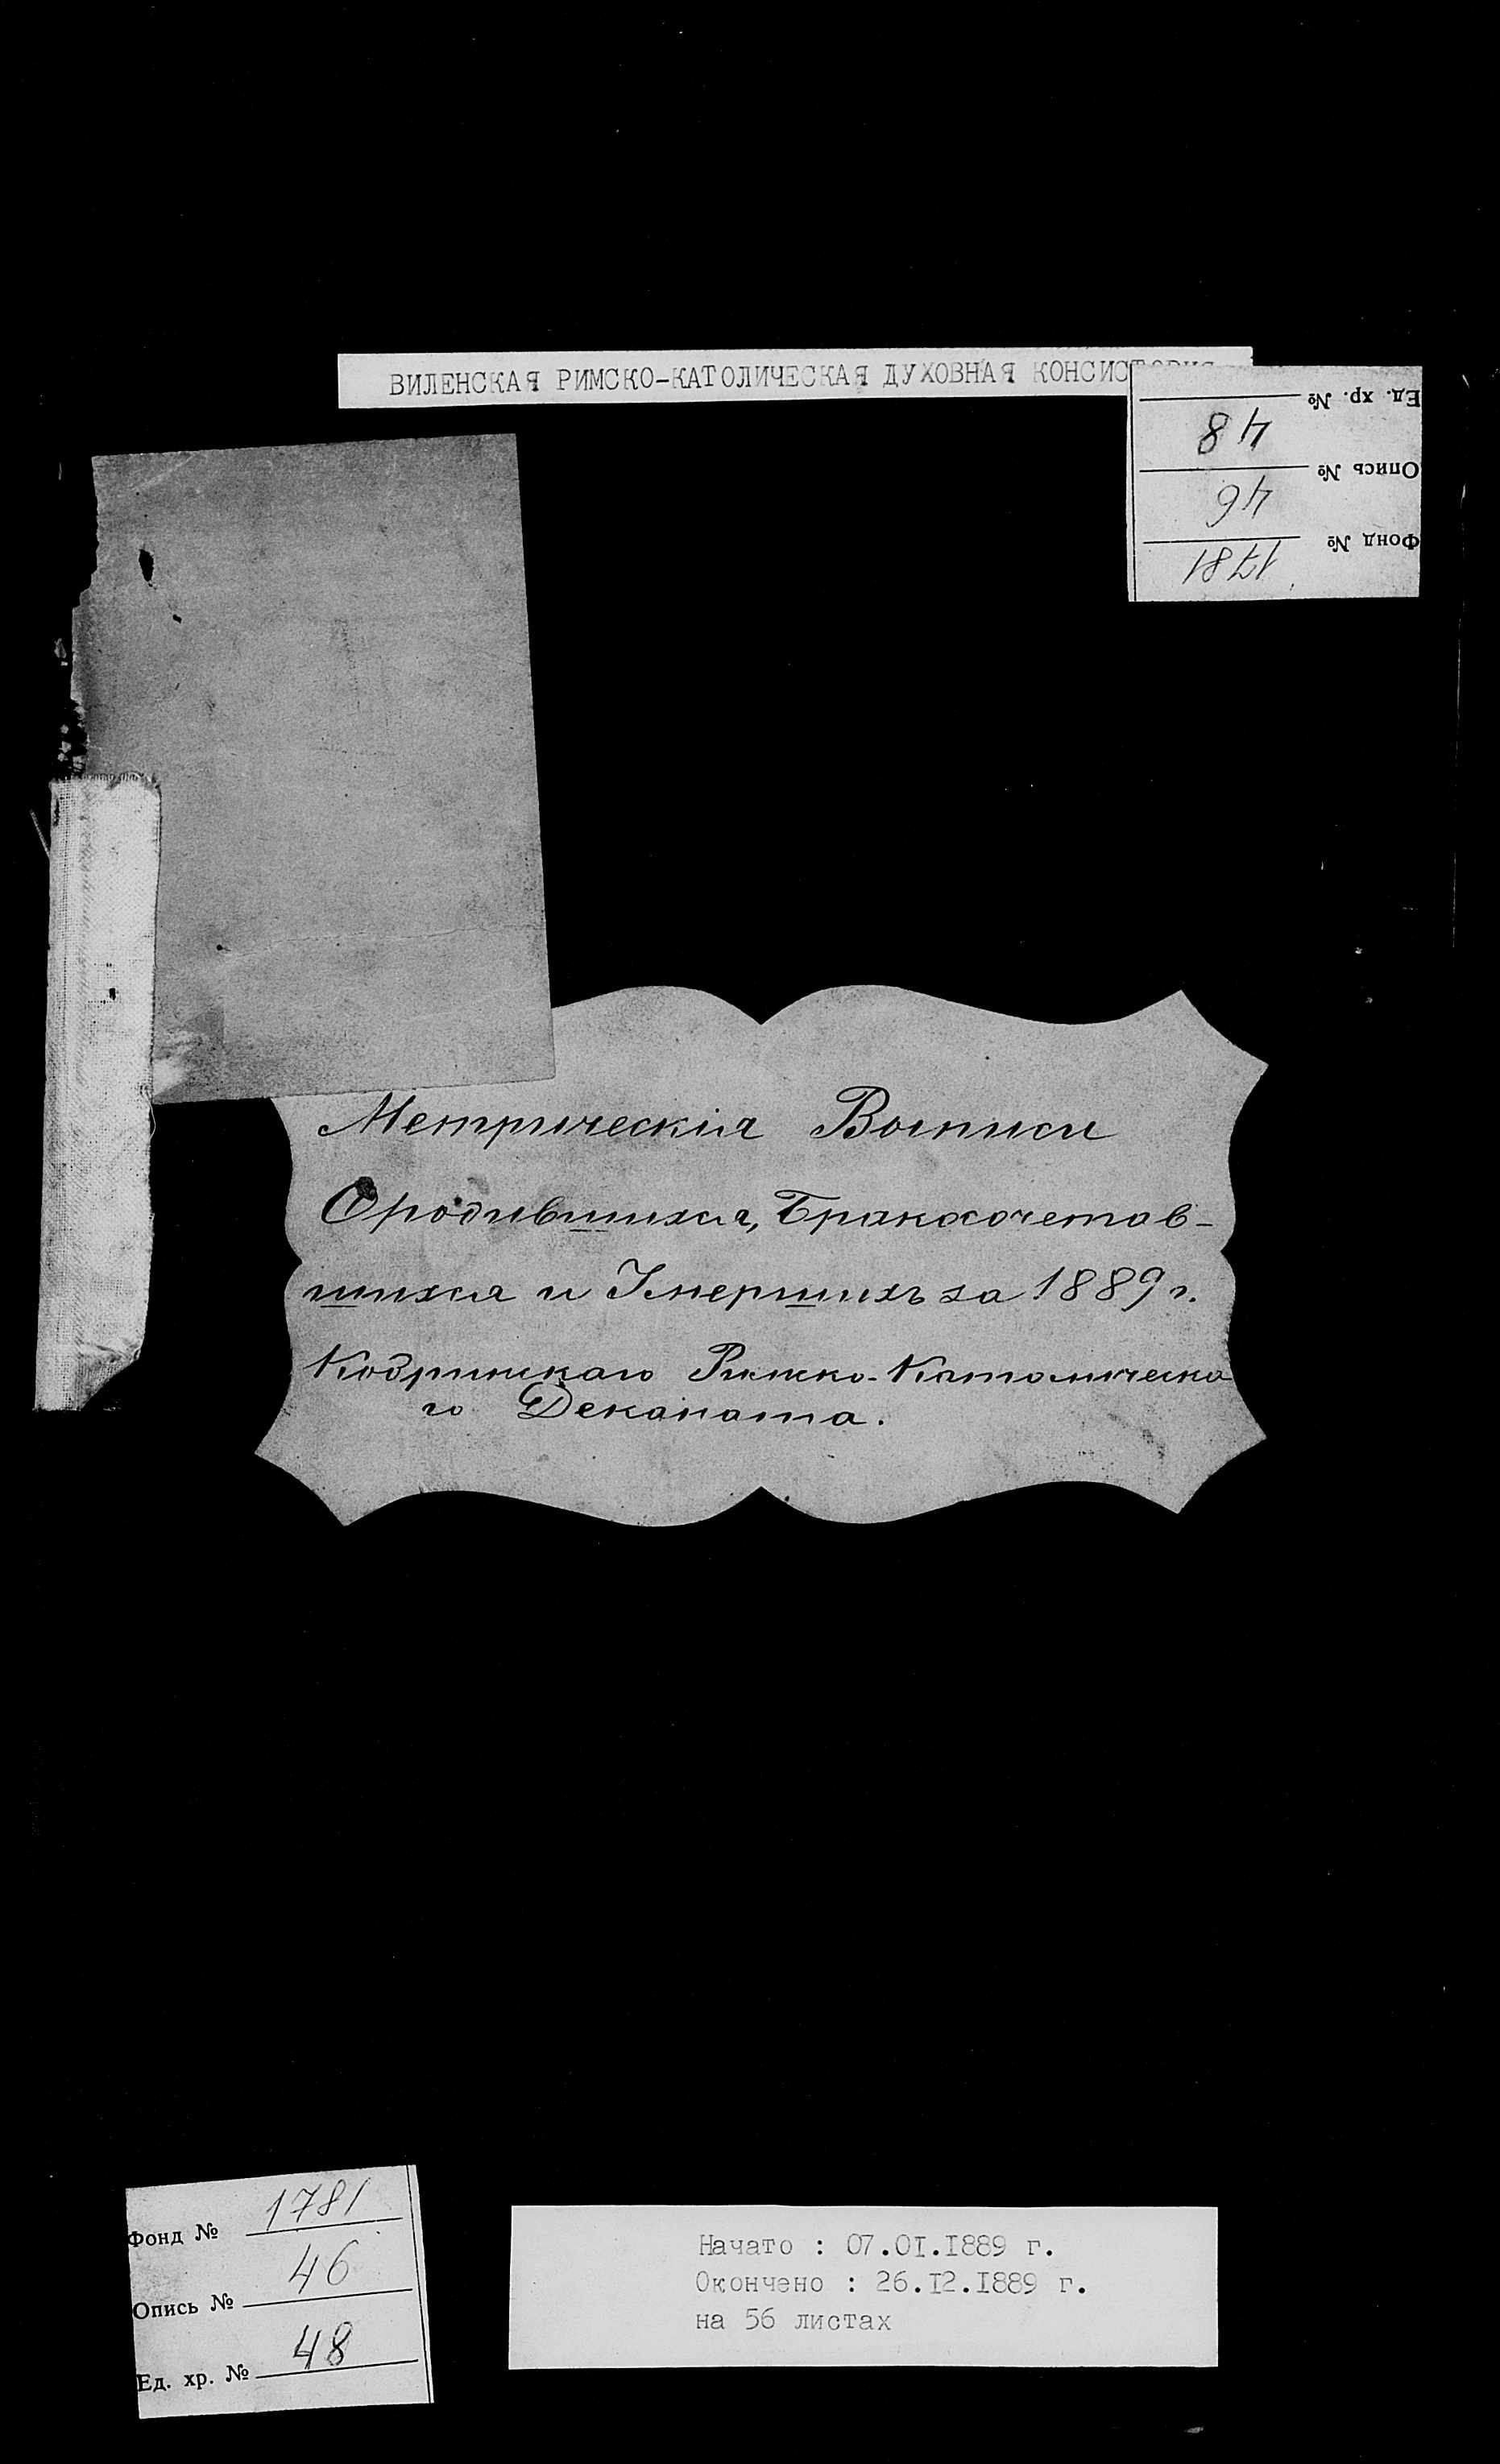 ВИЛЕНСКАЯ РИМСКО-КАТОЛИЧЕСКАЯ ДУХОВНАЯ КОНСИСТОРИЯ
Ед. хр. № 48
Опись № 46
Фонд № 1781
Метрическія Выписи
О родившихся, Бракосочетав-
шихся и Умершихъ за 1889 г.
Кобринскаго Римско-Католическа
го Деканата.
Фонд № 1781
Опись № 46
Ед. хр. № 48
Начато : 07.01.1889 г.
Окончено : 26.12.1889 г.
на 56 листах